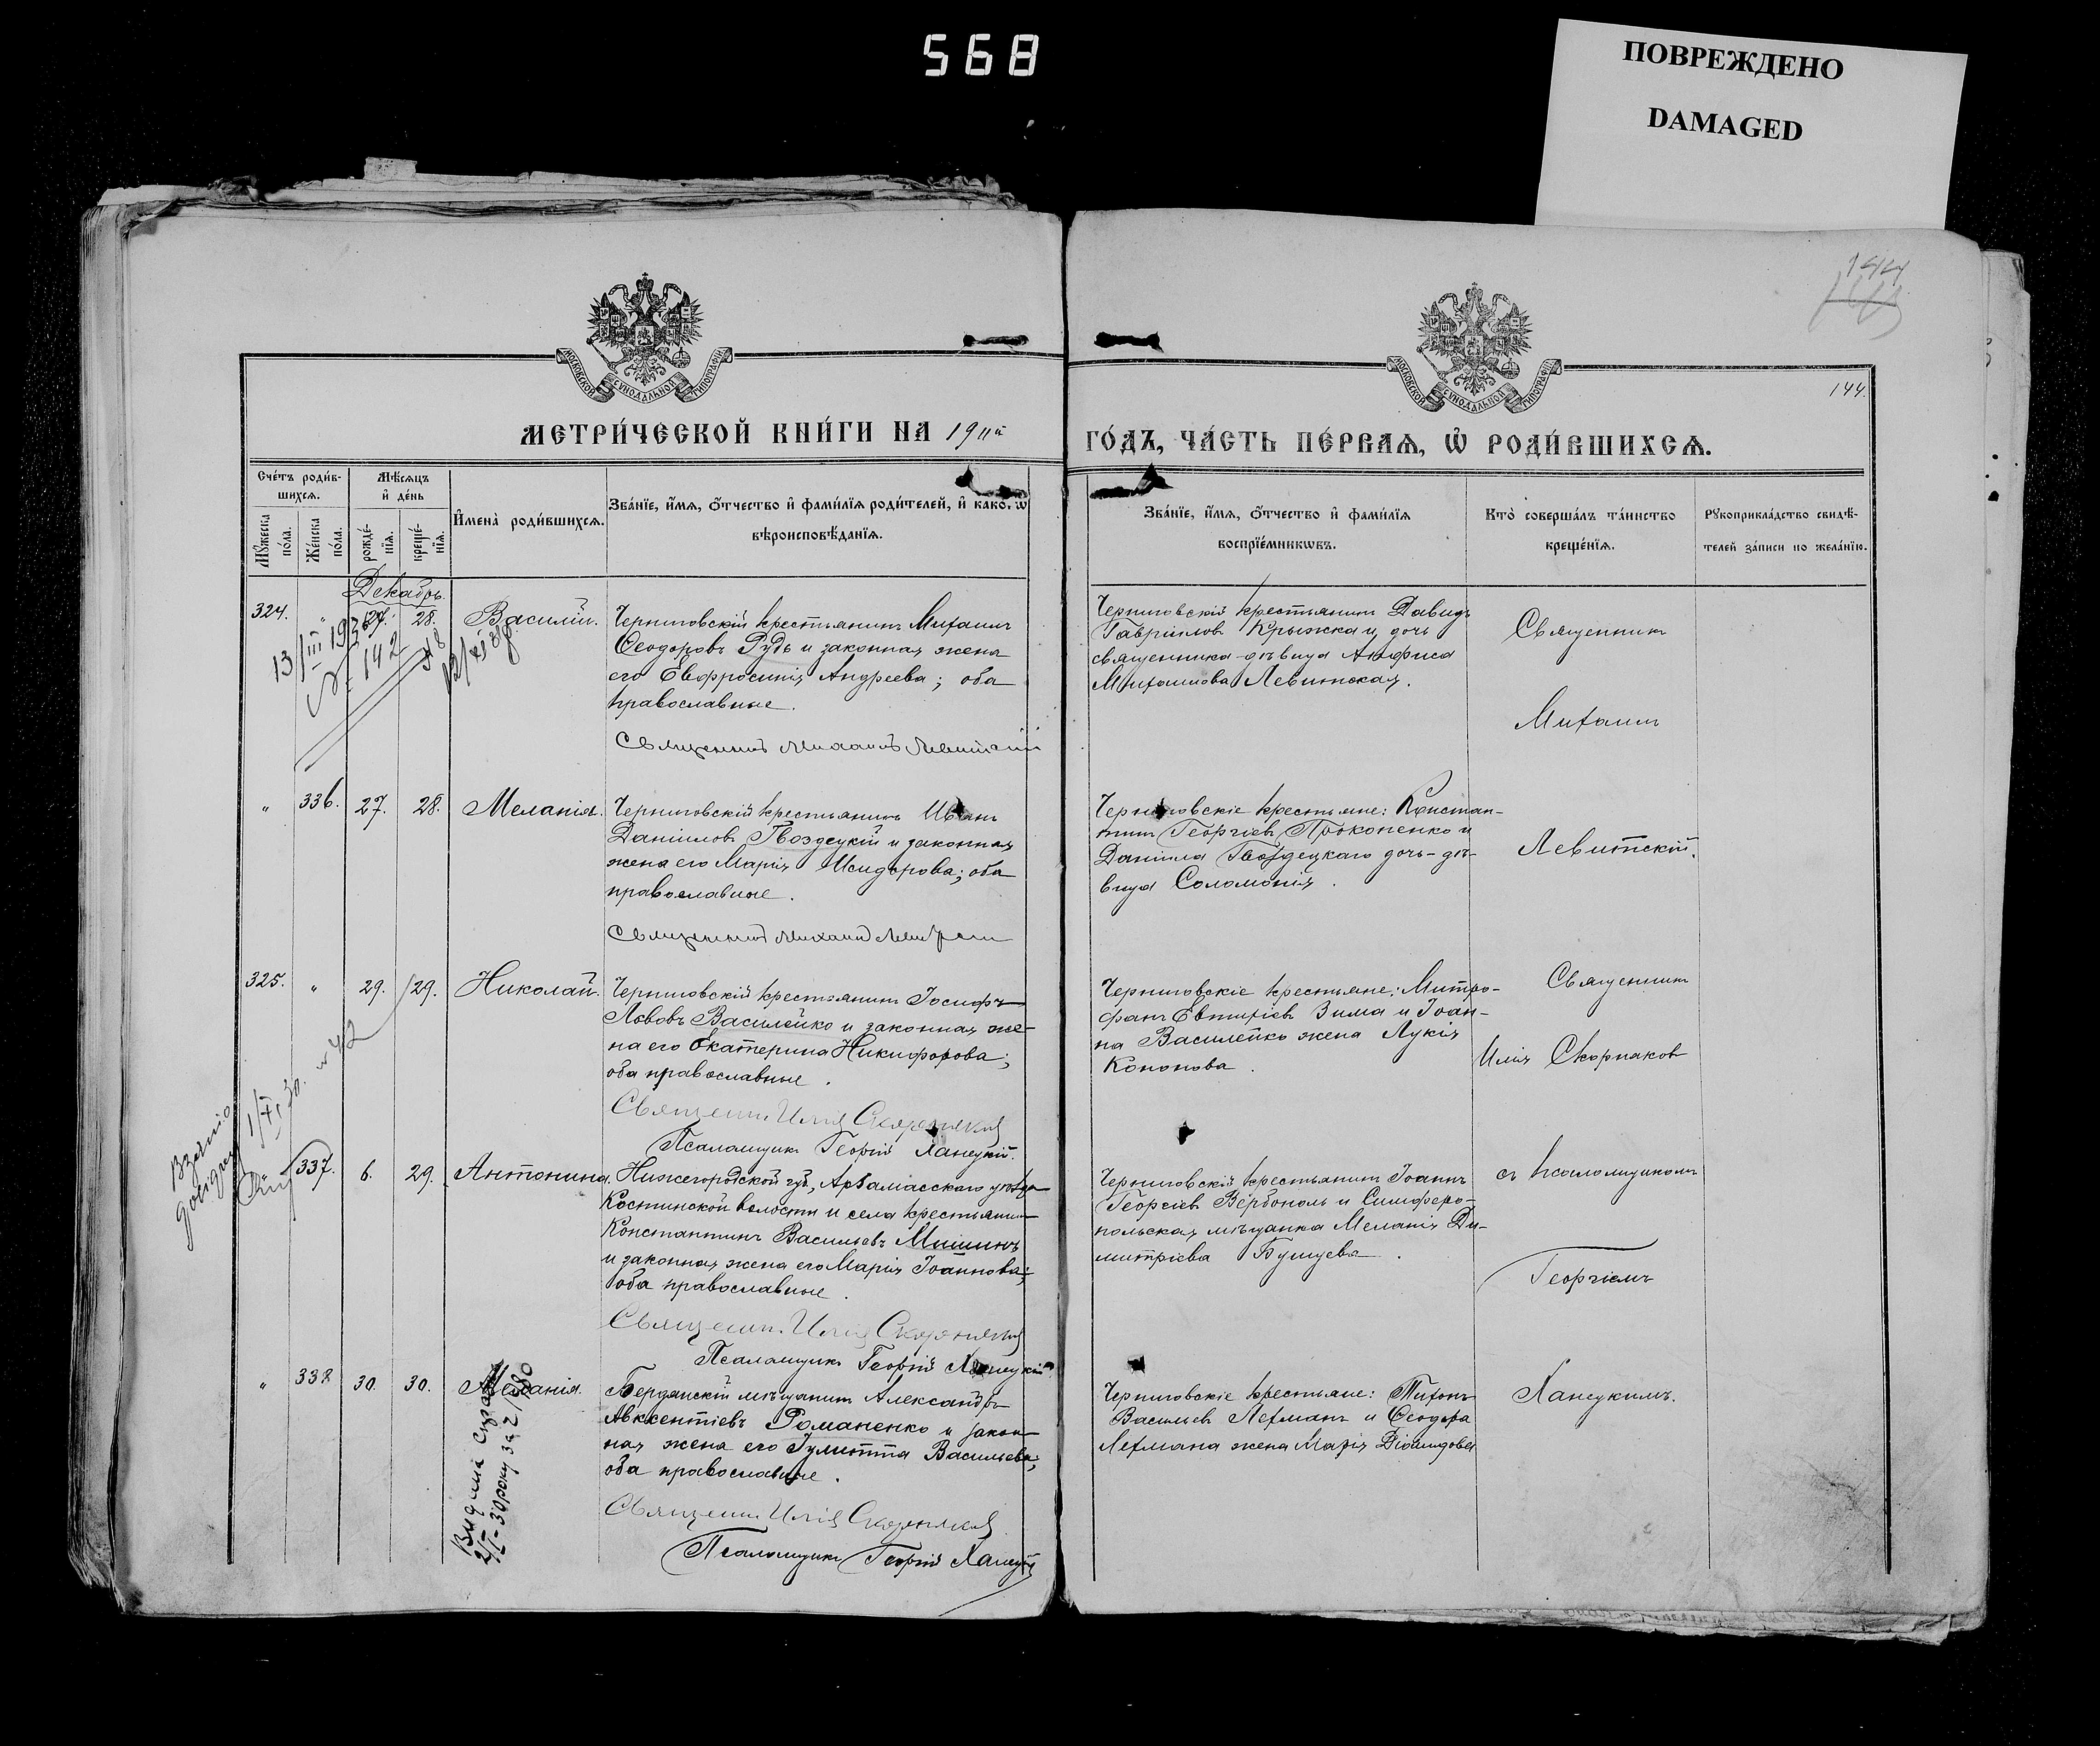 568
ПОВРЕЖДЕНО
DAMAGED
144
144.
МОСКОВСКОЙ СѴНОДАЛЬНОЙ ТИПОГРАФІИ
МОСКОВСКОЙ СѴНОДАЛЬНОЙ ТИПОГРАФІИ
МЕТРИ́ЧЕСКОЙ КНИ́ГИ НА 1911й
ГО́ДЪ, ЧА́СТЬ ПЕ́РВАЯ, Ѡ҆ РОДИ́ВШИХСЯ.
Сче́тъ роди́в-
шихся.
Мꙋжеска по́ла.
Же́нска по́ла.
Мѣ́сяцъ
и҆ де́нь
рожде́-
нїя.
креще́-
нїя.
И҆мена̀ роди́вшихся.
Зва́нїе, и҆́мя, о҆́тчество и҆ фами́лїя роди́телей, и҆ како́гѡ
вѣроисповѣ́данїя.
Зва́нїе, и҆́мя, о҆́тчество и҆ фами́лїя
воспрїе́мникѡвъ.
Кто̀ соверша́лъ та́инство
креще́нїя.
Рꙋкоприкла́дство свидѣ́-
телей за́писи по жела́нїю.
Декабрь.
324. " 27. 28. Василій.
Черниговскій крестьянинъ Михаилъ
Ѳеодоровъ Рудь и законная жена
его Евфросинія Андреева; оба
православные.
Священникъ Михаилъ Левитскій
Черниговскій крестьянинъ Давидъ
Гавріиловъ Крыжка и дочь
священника-дѣвица Анфиса
Михаилова Левитская.
Священникъ
Михаилъ
13/III 193
№ 142
" 336. 27. 28. Меланія.
Черниговскій крестьянинъ Иванъ
Даніиловъ Гвоздецкій и законная
жена его Марія Исидорова; оба
православные.
Священникъ Михаилъ
Черниговскіе крестьяне: Констан-
тинъ Георгіевъ Прокопенко и
Даніила Гвоздецкаго дочь-дѣ-
вица Соломонія.
Левитскій.
325. " 29. 29. Николай.
Черниговскій крестьянинъ Іосифъ
Львовъ Василейко и законная же-
на его Екатерина Никифорова;
оба православные.
Священ. Илія Скорняковъ
Псаломщикъ Георгій Ханецкій.
Черниговскіе крестьяне: Митро-
фанъ Евтихіевъ Зима и Іоан-
на Василейко жена Лукія
Кононова.
Священникъ
Илія Скорняковъ
337. 6. 29. Антонина.
Нижегородской губ., Арзамасскаго уѣзда
Костинской волости и села крестьянинъ
Константинъ Васильевъ Мишинъ
и законная жена его Марія Іоаннова;
оба православные.
Священ. Илія Скорняковъ
Псаломщикъ Георгій Ханецкій
Черниговскій крестьянинъ Іоаннъ
Георгіевъ Вербополь и Симферо-
польская мѣщанка Меланія Ди-
митріева Бушуева.
съ псаломщикомъ
Георгіемъ
" 338 30. 30. Меланія.
Бердянскій мѣщанинъ Александръ
Авксентіевъ Романенко и закон-
ная жена его Іулитта Васильева;
оба православные.
Священ. Илія Скорняковъ
Псаломщикъ Георгій Ханецкій
Черниговскіе крестьяне: Тихонъ
Васильевъ Лехманъ и Ѳеодора
Лехмана жена Марія Діомидова
Ханецкимъ.